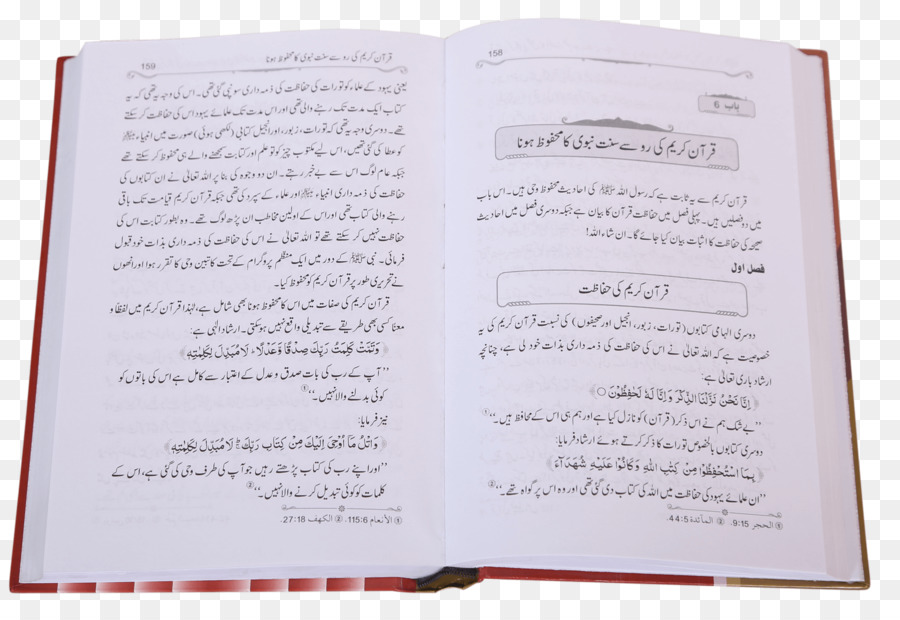 158
باب 6
قرآن کریم کی رو سے سنت نبوی کا محفوظ ہونا
قرآن کریم سے یہ ثابت ہے کہ رسول اللہ ﷺ کی احادیث محفوظ وحی ہیں۔ اس باب
میں دو فصلیں ہیں۔ پہلی فصل میں حفاظت قرآن کا بیان ہے جبکہ دوسری فصل میں احادیث
صحیحہ کی حفاظت کا اثبات بیان کیا جائے گا۔ ان شاء اللہ!
فصل اول
قرآن کریم کی حفاظت
دوسری الہامی کتابوں (تورات، زبور، انجیل اور صحیفوں) کی نسبت قرآن کریم کی یہ
خصوصیت ہے کہ اللہ تعالیٰ نے اس کی حفاظت کی ذمہ داری بذات خود لی ہے، چنانچہ
ارشاد باری تعالیٰ ہے:
﴿اِنَّا نَحْنُ نَزَّلْنَا الذِّكْرَ وَ اِنَّا لَهٗ لَحٰفِظُوْنَ ○﴾
’’بے شک ہم نے اس ذکر (قرآن) کو نازل کیا ہے اور ہم ہی اس کے محافظ ہیں۔‘‘①
دوسری کتابوں بالخصوص تورات کا ذکر کرتے ہوئے ارشاد فرمایا:
﴿بِمَا اسْتُحْفِظُوْا مِنْ كِتٰبِ اللّٰهِ وَ كَانُوْا عَلَيْهِ شُهَدَآءَ﴾
’’ان علمائے یہود کی حفاظت میں اللہ کی کتاب دی گئی تھی اور وہ اس پر گواہ تھے۔‘‘②
① الحجر 9:15. ② المآئدة 44:5.
قرآن کریم کی رو سے سنت نبوی کا محفوظ ہونا 159
یعنی یہود کے علماء کو تورات کی حفاظت کی ذمہ داری سونپی گئی تھی۔ اس کی وجہ یہ تھی کہ یہ
کتاب ایک مدت تک رہنے والی تھی اور اس مدت تک علمائے یہود اس کی حفاظت کر سکتے
تھے۔ دوسری وجہ یہ تھی کہ تورات، زبور، اور انجیل کتابی (لکھی ہوئی) صورت میں انبیاء علیہم السلام
کو عطا کی گئی تھیں، اس لیے مکتوب چیز کو تو علم اور کتابت سمجھنے والے ہی محفوظ کر سکتے تھے
جبکہ عام لوگ اس سے بے خبر رہتے۔ ان دو وجوہ کی بنا پر اللہ تعالیٰ نے ان کتابوں کی
حفاظت کی ذمہ داری انبیاء علیہم السلام اور علماء کے سپرد کی تھی جبکہ قرآن کریم قیامت تک باقی
رہنے والی کتاب تھی اور اس کے اولین مخاطب ان پڑھ لوگ تھے۔ وہ بطور کتابت اس کی
حفاظت نہیں کر سکتے تھے تو اللہ تعالیٰ نے اس کی حفاظت کی ذمہ داری بذات خود قبول
فرمائی۔ نبی ﷺ کے دور میں ایک منظم پروگرام کے تحت کاتبین وحی کا تقرر ہوا اور انھوں
نے تحریری طور پر قرآن کریم کو محفوظ کیا۔
قرآن کریم کی صفات میں اس کا محفوظ ہونا بھی شامل ہے، لہٰذا قرآن کریم میں لفظاً و
معناً کسی بھی طریقے سے تبدیلی واقع نہیں ہو سکتی۔ ارشاد الٰہی ہے:
﴿وَ تَمَّتْ كَلِمَتُ رَبِّكَ صِدْقًا وَّ عَدْلًا ؕ لَا مُبَدِّلَ لِكَلِمٰتِهٖ﴾
’’آپ کے رب کی بات صدق و عدل کے اعتبار سے کامل ہے اس کی باتوں کو
کوئی بدلنے والا نہیں۔‘‘①
نیز فرمایا:
﴿وَ اتْلُ مَاۤ اُوْحِيَ اِلَيْكَ مِنْ كِتَابِ رَبِّكَ ؕ لَا مُبَدِّلَ لِكَلِمٰتِهٖ﴾
’’اور اپنے رب کی کتاب پڑھتے رہیں جو آپ کی طرف وحی کی گئی ہے، اس کے
کلمات کو کوئی تبدیل کرنے والا نہیں۔‘‘②
① الأنعام 115:6. ② الكهف 27:18.